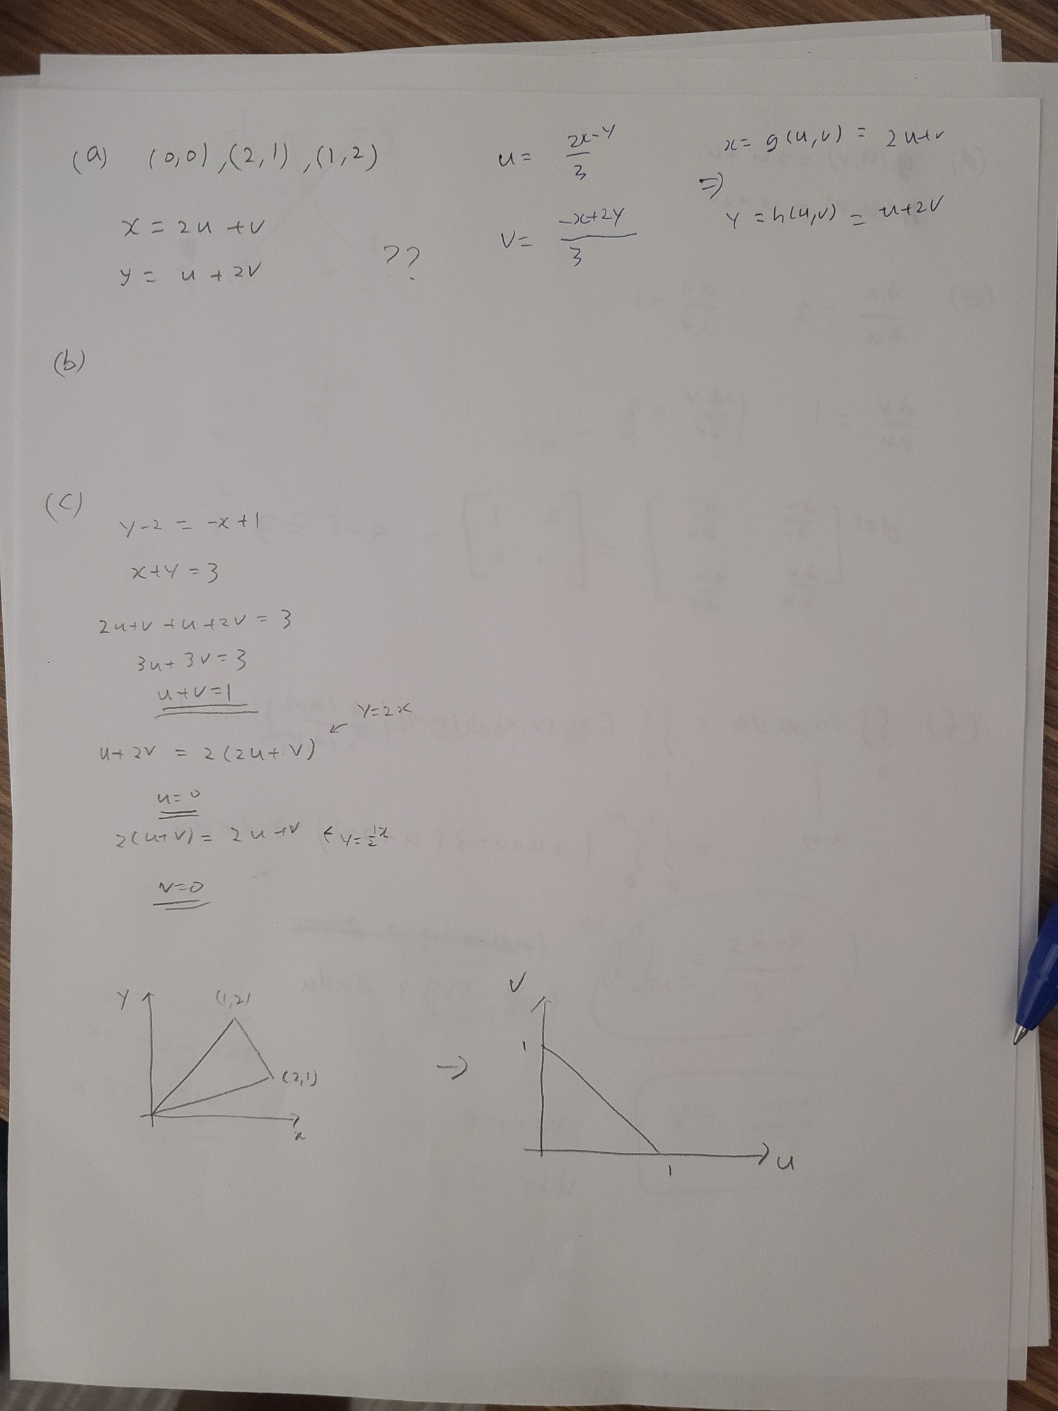 (a) (0,0), (2,1), (1,2)
x = 2u + v
y = u + 2v
??
u = (2x-y)/3
v = (-x+2y)/3
⇒
x = g(u,v) = 2u+v
y = h(u,v) = u+2v
(b)
(c)
y-2 = -x+1
x+y = 3
2u+v+u+2v = 3
3u+3v=3
u+v=1
u+2v = 2(2u+v) ← y=2x
u=0
2(u+v) = 2u+v ← y=½x
v=0
y
(1,2)
(2,1)
x
→
v
1
1
u